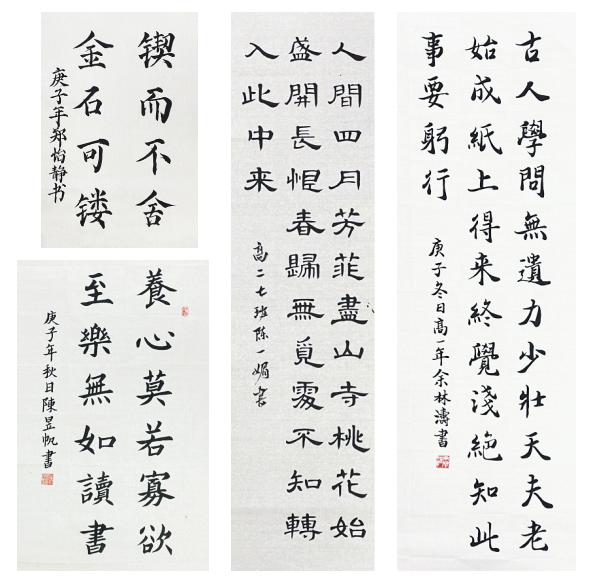 锲而不舍
金石可镂
庚子年郑怡静书
養心莫若寡欲
至樂無如讀書
庚子年秋日陳昱帆書
人間四月芳菲盡山寺桃花始
盛開長恨春歸無覓處不知轉
入此中来
高二七班陈一媚書
古人學問無遺力少壯天夫老
始成紙上得来終覺淺絕知此
事要躬行
庚子冬日高一年余林濤書